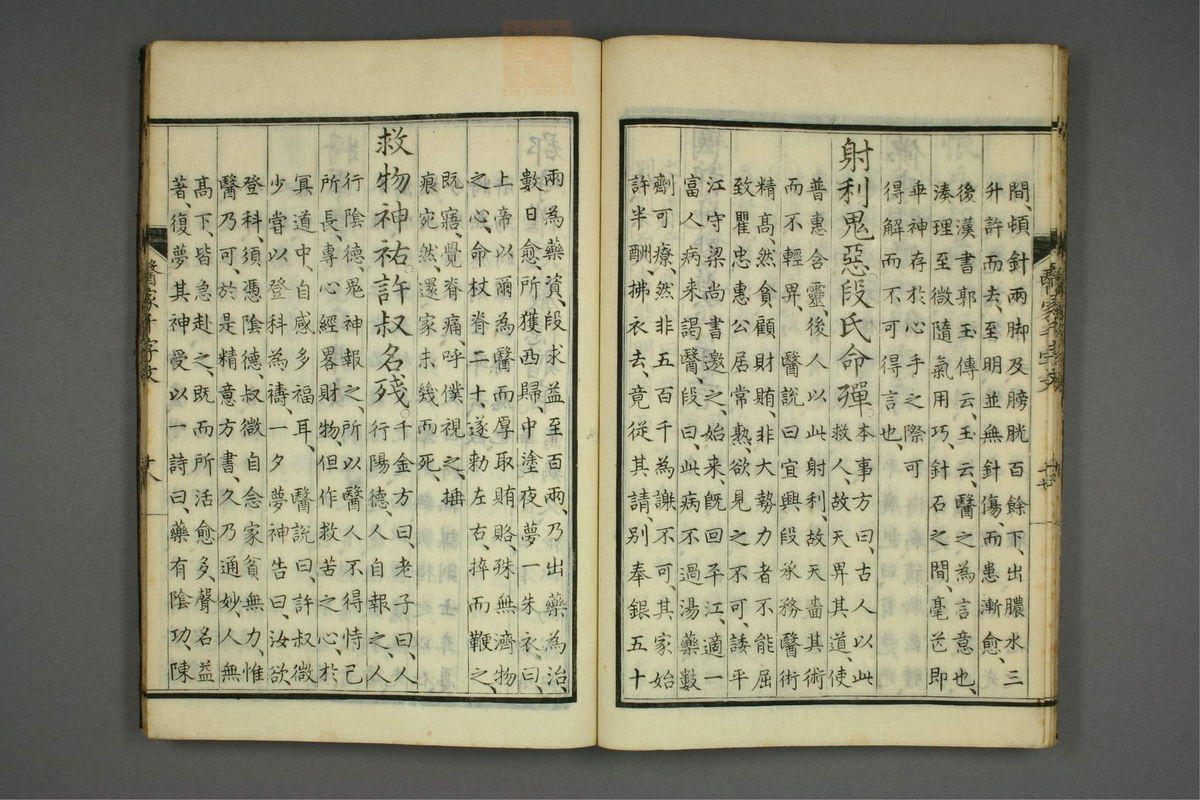 間、頓針兩脚及膀胱百餘下、出膿水三
升許而去、至明並無針傷、而患漸愈、
後漢書郭玉傳云、玉云、醫之為言意也、
湊理至微、隨氣用巧、針石之間、毫芒即
乖、神存於心手之際、可
得解而不可得言也、
射利鬼惡段氏命彈。本事方曰、古人以此
救人、故天畀其道、使
普惠含靈、後人以此射利、故天嗇其術
而不輕畀、醫說曰宜興段承務醫術
精髙、然貪顧財賄、非大勢力者不能屈
致、瞿忠惠公居常熟、欲見之不可、諉平
江守梁尚書邀之、始来、既回平江、適一
富人病来謁醫、段曰、此病不過湯藥數
劑可療、然非五百千為謝不可、其家始
許半酬、拂衣去、竟從其請、別奉銀五十
兩為藥資、段求益至百兩、乃出藥為治、
數日愈、所獲西歸、中塗夜夢一朱衣曰、
上帝以爾為醫而厚取賄賂、殊無濟物
之心、命杖脊二十、遂勅左右、捽而鞭之、
既寤、覺脊痛、呼僕視之、捶
痕宛然、還家未幾而死、
救物神祐許叔名殘。千金方曰、老子曰、人
行陽德、人自報之、人
行陰德、鬼神報之、所以醫人不得恃己
所長、專心經畧財物、但作救苦之心、於
冥道中、自感多福耳、醫說曰、許叔微
少嘗以登科為禱、一夕夢神告曰、汝欲
登科、須憑陰德、叔微自念家貧無力、惟
醫乃可、於是精意方書、久乃通妙、人無
髙下、皆急赴之、既而所活愈多、聲名益
著、復夢其神受以一詩曰、藥有陰功、陳